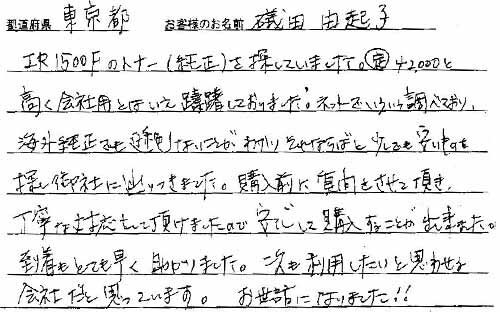 都道府県 東京都 お客様のお名前 磯田 由起子
IR1500Fのトナー(純正)を探していました。定 42,000と
高く会社用とはいえ躊躇しておりました。ネットでいろいろ調べており、
海外純正でも遜色ないことがわかり それならばと少しでも安いものを
探し御社に辿りつきました。購入前に質問をさせて頂き、
丁寧な対応をして頂けましたので安心して購入することが出来ました。
到着もとても早く助かりました。次も利用したいと思わせる
会社だと思っています。 お世話になりました!!